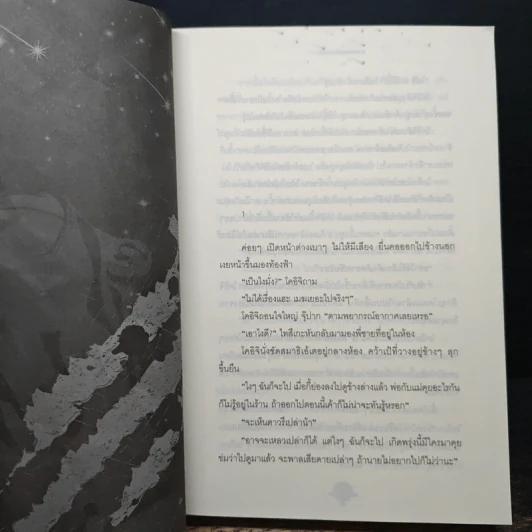 1
ค่อยๆ เปิดหน้าต่างเบาๆ ไม่ให้มีเสียง ยื่นคอออกไปข้างนอก
เงยหน้าขึ้นมองท้องฟ้า
“เป็นไงมั่ง?” โคอิจิถาม
“ไม่ได้เรื่องแฮะ เมฆเยอะไปจริงๆ”
โคอิจิถอนใจใหญ่ จุ๊ปาก “ตามพยากรณ์อากาศเลยเหรอ”
“เอาไงดี?” ไทสึเกะหันกลับมามองพี่ชายที่อยู่ในห้อง
โคอิจินั่งขัดสมาธิเอ้เตอยู่กลางห้อง คว้าเป้ที่วางอยู่ข้างๆ ลุก
ขึ้นยืน
“ไงๆ ฉันก็จะไป เมื่อกี้ย่องลงไปดูข้างล่างแล้ว พ่อกับแม่คุยอะไรกัน
ก็ไม่รู้อยู่ในร้าน ถ้าออกไปตอนนี้เค้าก็ไม่น่าจะทันรู้หรอก”
“จะเห็นดาวรึเปล่าน้า”
“อาจจะเหลวเปล่าก็ได้ แต่ไงๆ ฉันก็จะไป เกิดพรุ่งนี้มีใครมาคุย
ข่มว่าไปดูมาแล้ว จะพาลเสียดายเปล่าๆ ถ้านายไม่อยากไปก็ไม่ว่านะ”